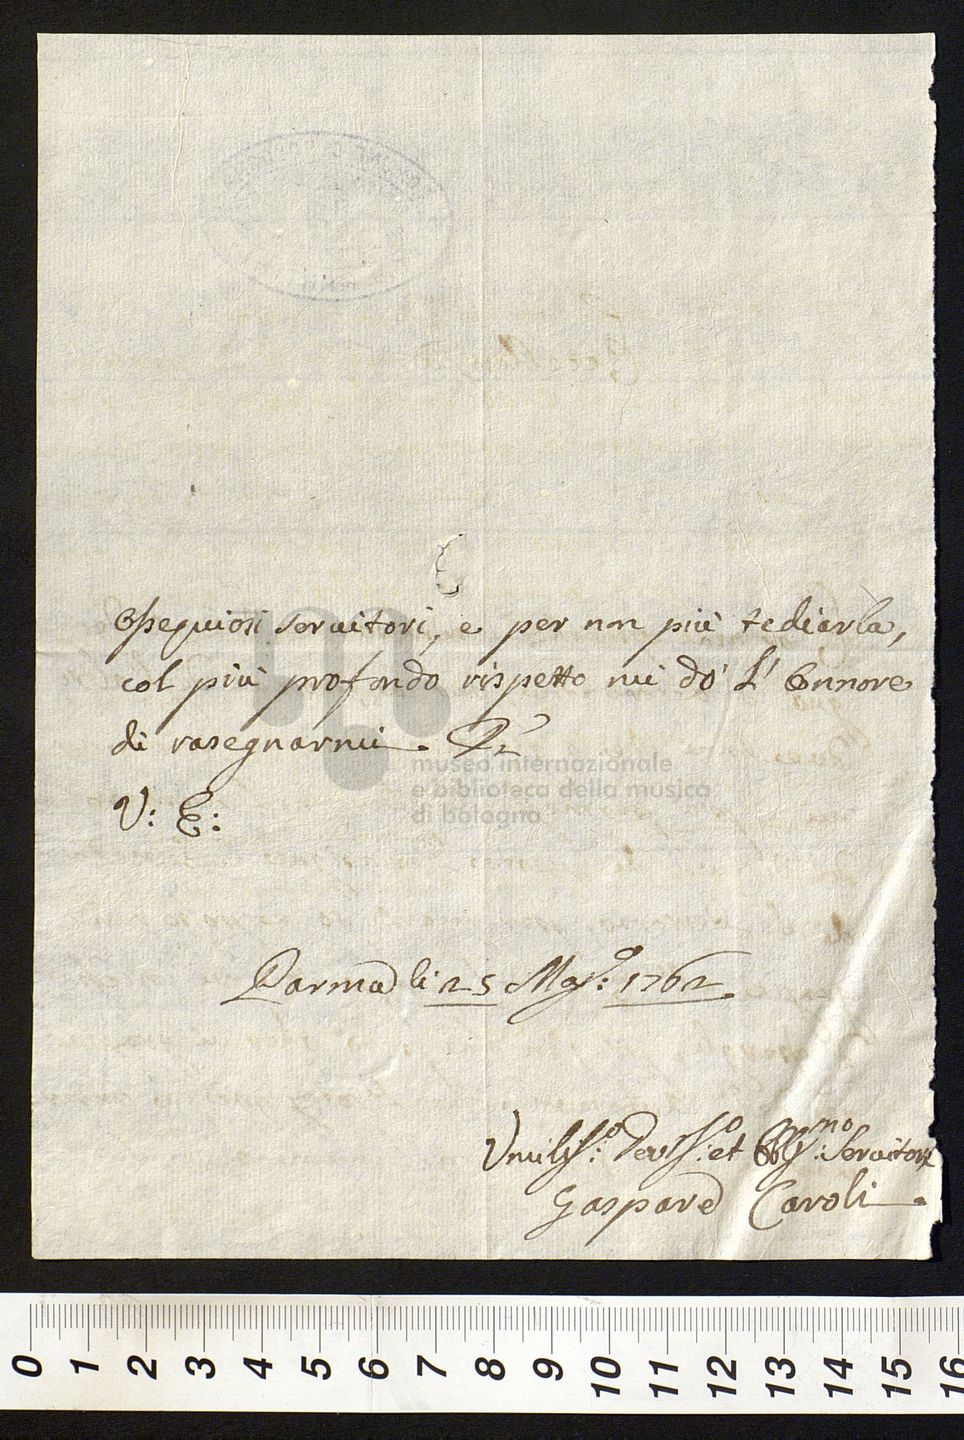 Ossequiosi servitori, e per non più tediarla,
col più profondo rispetto mi dò l' Onnore
di rasegnarmi. Di
V: E:
Parma li 25 Mag.º: 1762.
Umiliss.º: Devtss.º: et Obblig.mo: Servitore
Gaspare Caroli.
museo internazionale
e biblioteca della musica
di bologna
0 1 2 3 4 5 6 7 8 9 10 11 12 13 14 15 16